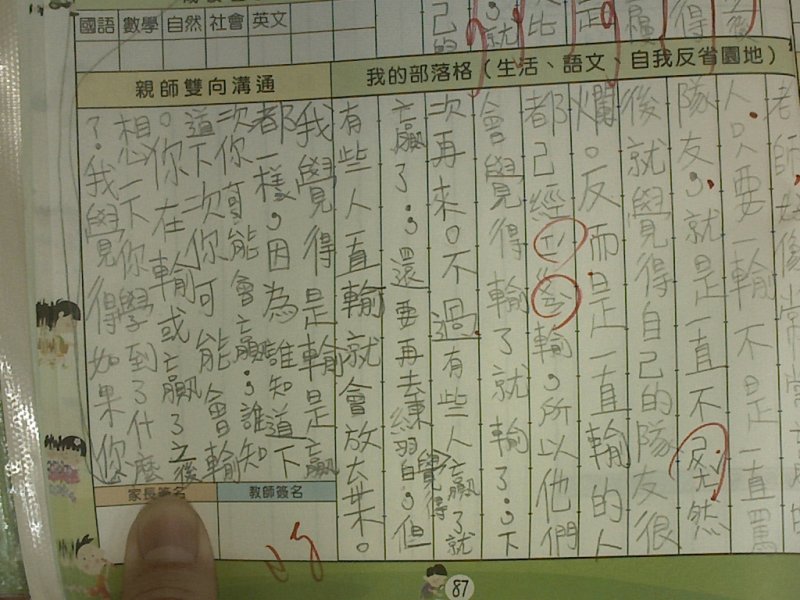 國語 數學 自然 社會 英文
我的部落格（生活、語文、自我反省園地）
老師,好像常常
人。只要一輸不是一直罵
隊友。就是一直不然
後就覺得自己的隊友很
爛。反而是一直輸的人
都已經輸,所以他們
會覺得輸了就輸了,下
次再來。不過有些人覺得贏了就
贏了,還要再去練習,但
有些人一直輸就會放棄。
親師雙向溝通
我覺得是輸是贏
都一樣,因為誰知道下
次你可能會贏,誰知
道下次你可能會輸
。你在輸或贏了之後
想一下你學到了什麼
?我覺得如果你
家長簽名 教師簽名
87